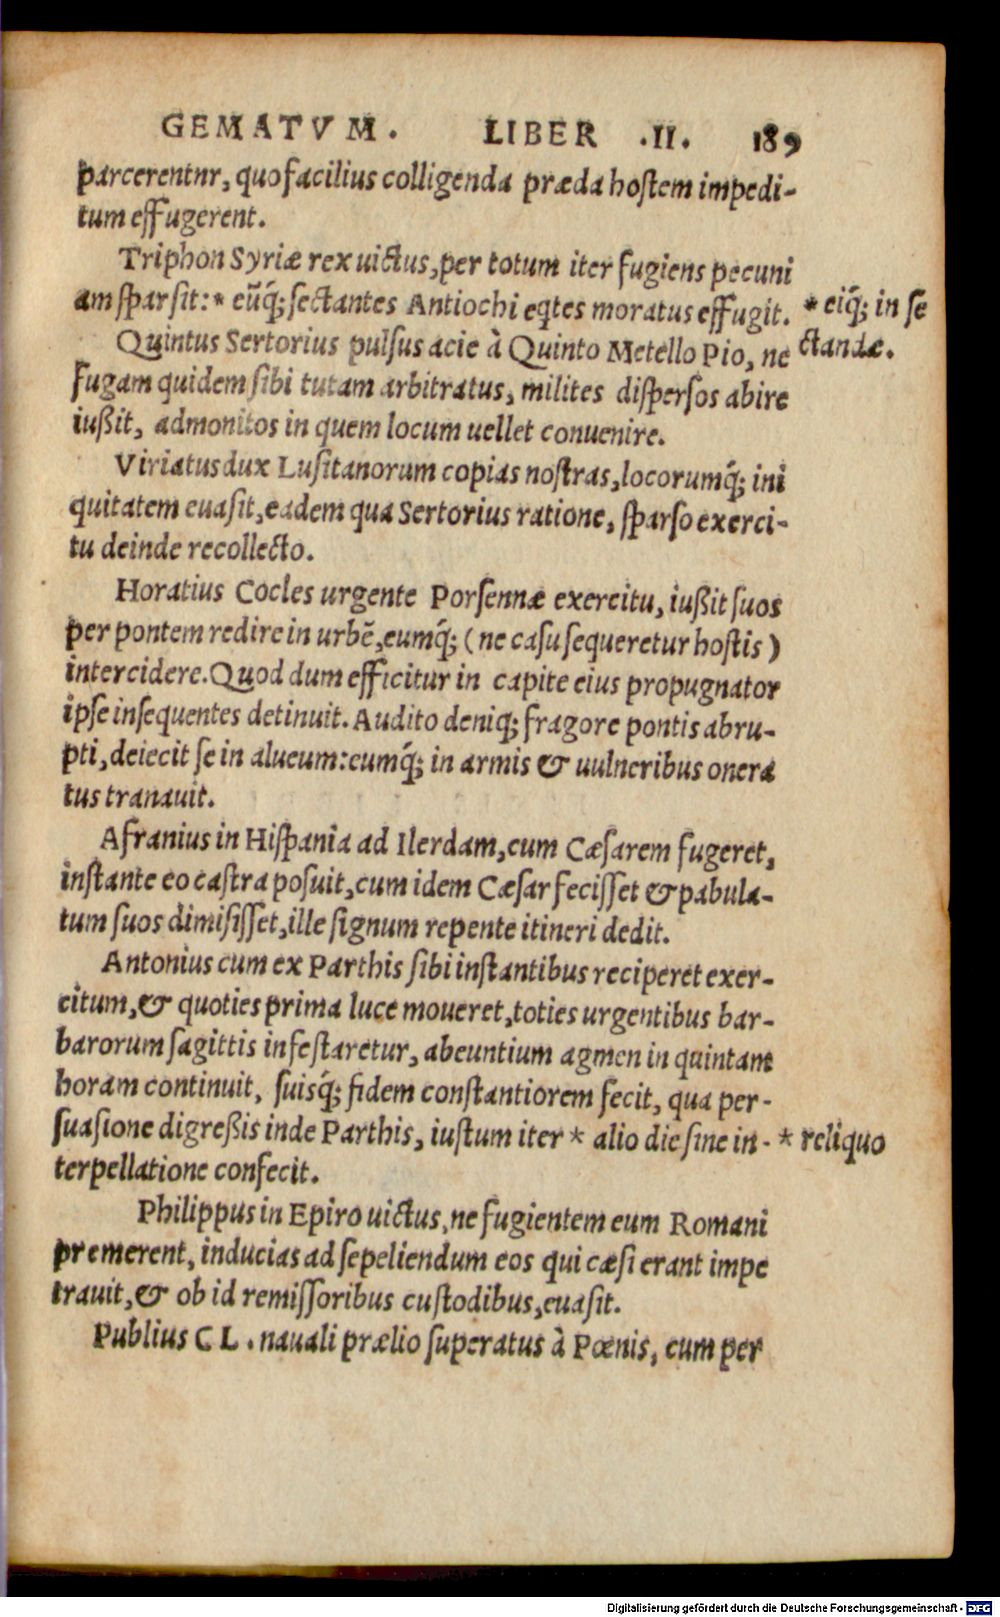 GEMATVM. LIBER .II. 189
parcerentnr, quo facilius colligenda præda hostem impedi-
tum effugerent.
Triphon Syriæ rex uictus, per totum iter fugiens pecuni
am sparsit: * eūq́; sectantes Antiochi eq̃tes moratus effugit. * eiq́; in se
Quintus Sertorius pulsus acie à Quinto Metello Pio, ne ctandæ.
fugam quidem sibi tutam arbitratus, milites dispersos abire
iußit, admonitos in quem locum uellet conuenire.
Viriatus dux Lusitanorum copias nostras, locorumq́; ini
quitatem euasit, eadem qua Sertorius ratione, sparso exerci-
tu deinde recollecto.
Horatius Cocles urgente Porsennæ exercitu, iußit suos
per pontem redire in urbē, eumq́; (ne casu sequeretur hostis)
intercidere. Quod dum efficitur in capite eius propugnator
ipse insequentes detinuit. Audito deniq; fragore pontis abru-
pti, deiecit se in alueum: eumq́; in armis & uulneribus onera
tus tranauit.
Afranius in Hispania ad Ilerdam, cum Cæsarem fugeret,
instante eo castra posuit, cum idem Cæsar fecisset & pabula-
tum suos dimisisset, ille signum repente itineri dedit.
Antonius cum ex Parthis sibi instantibus reciperet exer-
citum, & quoties prima luce moueret, toties urgentibus bar-
barorum sagittis infestaretur, abeuntium agmen in quintam
horam continuit, suisq́; fidem constantiorem fecit, qua per-
suasione digreßis inde Parthis, iustum iter * alio die sine in- * reliquo
terpellatione confecit.
Philippus in Epiro uictus, ne fugientem eum Romani
premerent, inducias ad sepeliendum eos qui cæsi erant impe
trauit, & ob id remissoribus custodibus, euasit.
Publius C L. nauali prælio superatus à Pœnis, cum per
Digitalisierung gefördert durch die Deutsche Forschungsgemeinschaft - DFG